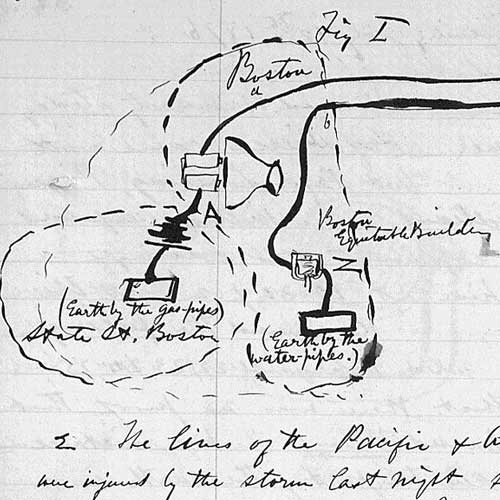 Fig I
Boston
a
b
A
Boston
Equitable Building
Z
(Earth by the gas-pipes)
State St. Boston
(Earth by the
water-pipes.)
2 The lines of the Pacific & A
were injured by the storm last night